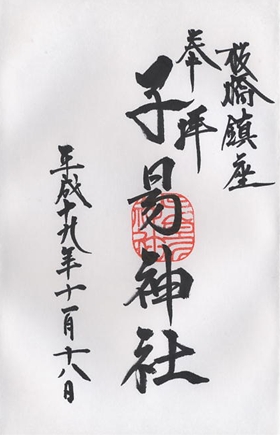 板橋鎮座
奉拝
子易神社
平成十九年十一月十八日